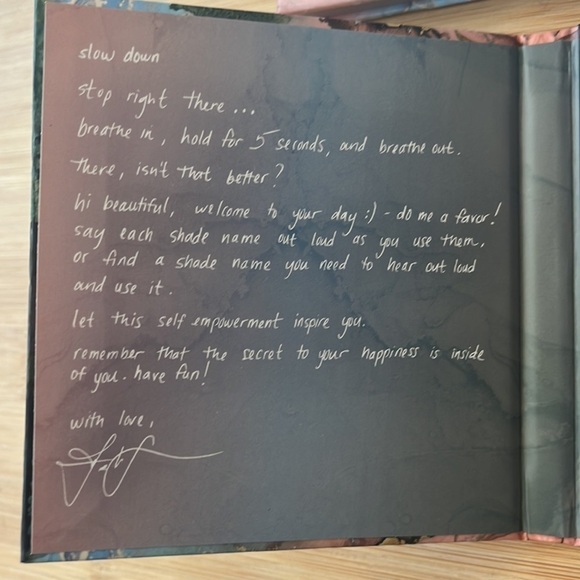 slow down
stop right there...
breathe in, hold for 5 seconds, and breathe out.
there, isn't that better?
hi beautiful, welcome to your day :) - do me a favor!
say each shade name out loud as you use them.
or find a shade name you need to hear out loud
and use it.
let this self empowerment inspire you.
remember that the secret to your happiness is inside
of you. have fun!
with love,